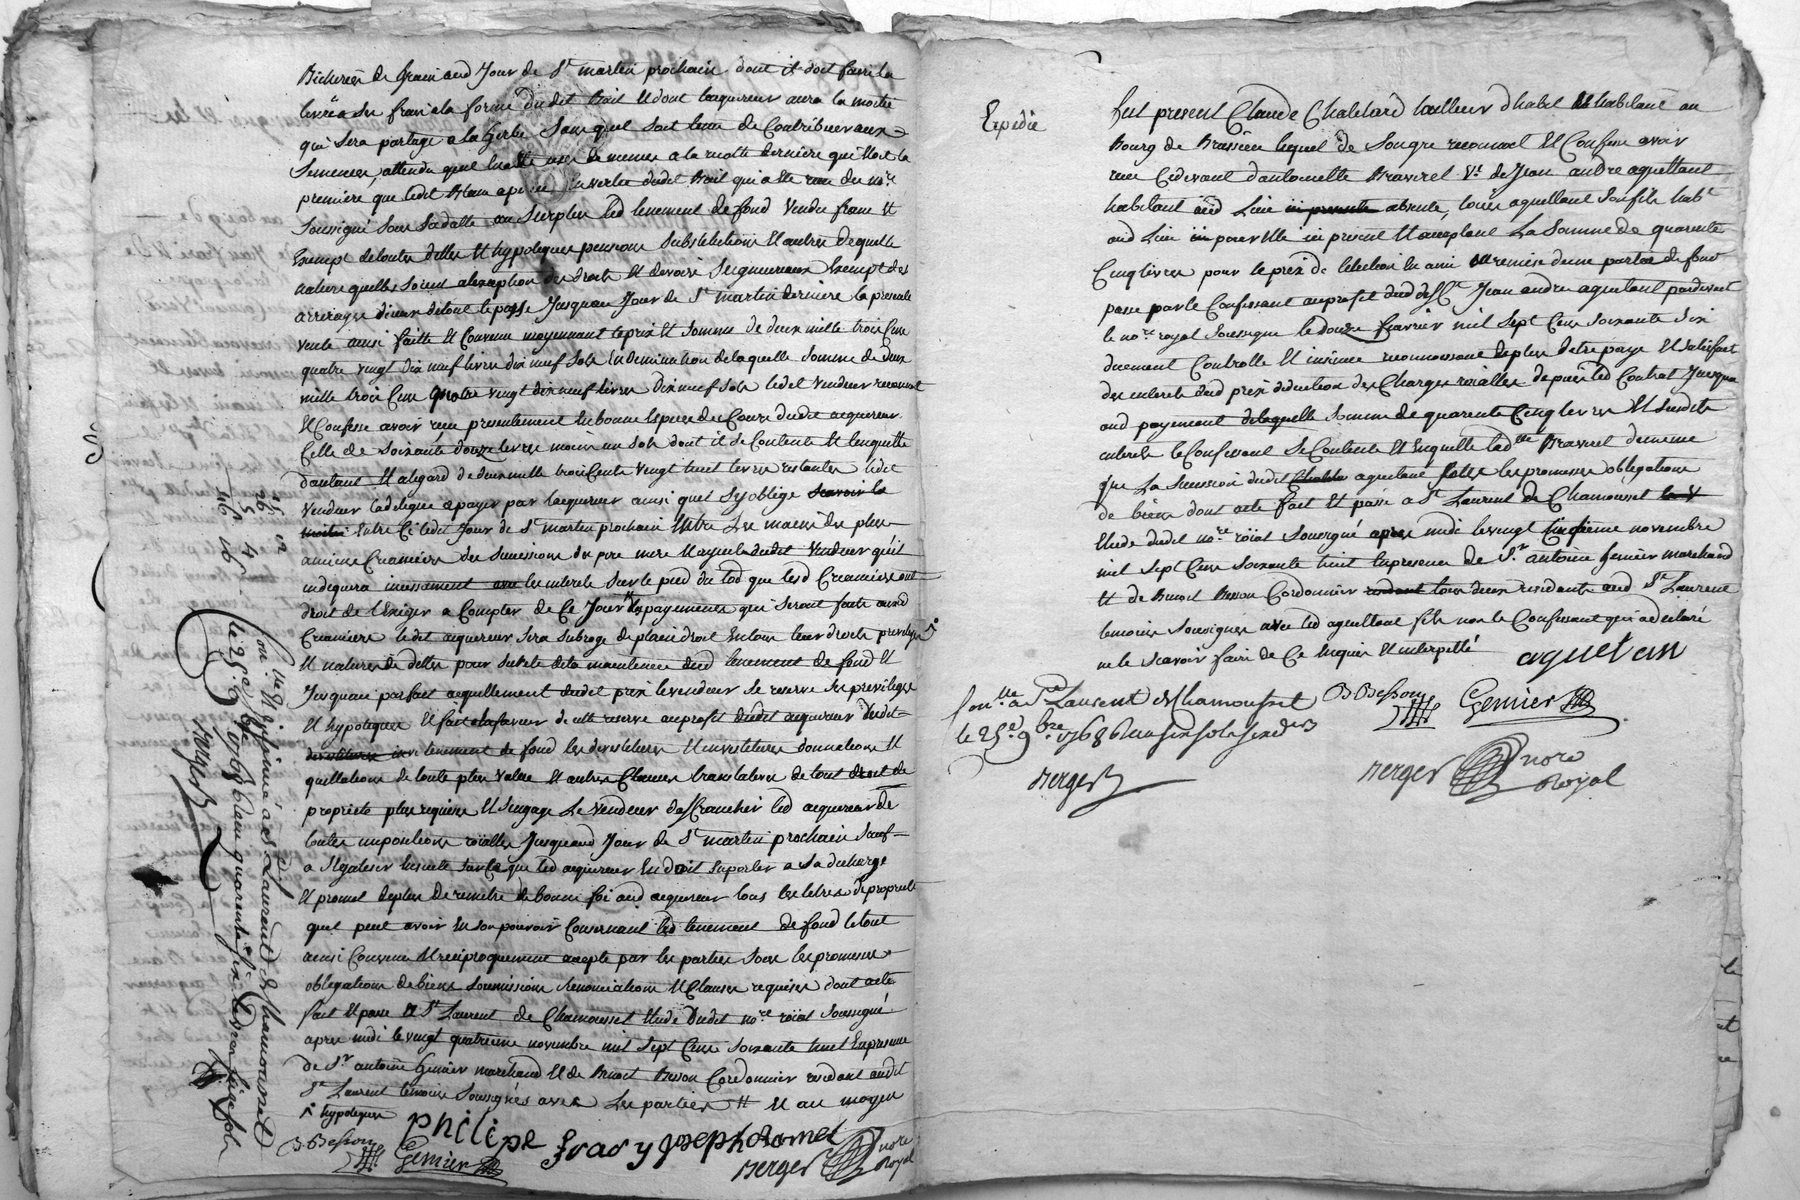 Bicherées de grain aud Jour de St martin prochain dont il doit faire la
levéea ses frais a la forme dudit Bail et dont lacquereur aura la moitié
qui sera partagé a la gerbe sans quil soit tenu de Contribuer aux
Semences, attendu quil en a eté usé de meme a la recolte derniere qui etoit la
premiere que ledit en vertu dudit Bail qui a eté reçu du nore
soussigné sous sa datte au surplus led tenement de fond vendu franc et
Exempt de toutes dettes et hypoteques pensions substitutions et autres de quelle
nature quelles soient alexception des droits et devoirs seigneuriaux Exempt des
arrerages diceux de tout le passé Jusquau Jour de St martin derniere la presente
vente ainsi faitte et Convenue moyennant le prix et somme de deux mille trois Cent
quatre vingt dix neuf livres dix neuf sols En deminution de laquelle somme de deux
mille trois Cent quatre vingt dix neuf livres dix neuf sols ledit vendeur reconnoit
et Confesse avoir reçu presentement en bonnes Especes du Cours dudit acquereur
Celle de soixante douze livres moins un sols dont il se Contente et lenquitte
dautant et alegard de deux mille trois Cents vingt huit livres restantes ledit
vendeur la delegue a payer par lacquereur ainsi quil sy oblige scavoir la
moitié Entre Ci et ledit Jour de St martin prochain Entre les mains des plus
anciens Creanciers des successions des pere mere et ayeule dudit vendeur quil
indiquera incessament avec les interets sur le pied du tod que lesd Creanciers ont
droit de lExiger a Compter de Ce Jour des payements qui seront faits auxd
Creanciers ledit acquereur sera subrogé de plain droit En tous leurs droits privileges
et natures de dettes pour sureté de la maintenue dud tenement de fond et
Jusquau parfait acquittement dudit prix levendeur se reserve ses privileges
et hypoteques et fait a la faveur de cette reserve au profit dudit acquereur dudit
tenement de fond les devestitures et investitures donnations et
quittations de toute plus value et autres Clauses translatives de tout droit de
proprieté plus requises et sengage le vendeur daffranchir led acquereur de
toutes impositions roïalles Jusquaud Jour de St martin prochain sauf
a Segaliser Ensuite sur Ce que led acquereur En doit suporter a sa decharge
et promet de plus de remettre de bonne foi aud acquereur tous les titres de proprieté
quil peut avoir En son pouvoir Concernant led tenement de fond le tout
ainsi Convenu et reciproquement accepté par les parties sous les promesses
obligations de biens soumissions renonciations et Clauses requises dont acte
fait et passé a St Laurent de Chamousset Etude dudit nore roïal soussigné
apres midi le vingt quatrieme novembre mil sept Cent soixante huit En presence
de Sr antoine Genier marchand et de Benoit Besson Cordonnier residant audit
St Laurent temoins soussignés avec les parties et au moyen
hypoteques
philipe Joseph
B Besson Gemier Berger nore Royal
Con.lle et insinué a St Laurent de Chamousset
le 25e 9bre 1768 Reçu quarante six livres seize sols
Berger
Expedié
fut present Claude Chatelard tailleur dhabit et habitant au
Bourg de Brussieu lequel de son gré reconnoit et Confesse avoir
reçu Cidevant dantoinette Braverel Ve de Jean andre aguettant
habitant aud Lieu ici presente absente, Louis aguettant son fils habt
aud Lieu ici pour Elle ici present et acceptant La somme de quarente
Cinq livres pour le prix de lelection en ami et remise dune partie de fond
passé par le Confessant au profit dud deft Jean andre aguetant pardevant
le nore royal soussigné le douze fevrier mil sept Cent soixante six
duement Controllé et insinué reconnoissant de plus detre payé et satisfait
des interets dud prix deduction des Charges roïalles depuis led Contrat Jusqua
aud payement de laquelle somme de quarente Cinq livres et susdits
interets le Confessant se Contente et Enquitte lad Braverel de meme
que la succession dudit aguetant sous les promesses obligations
de biens dont acte fait et passé a St Laurent de Chamousset
Etude dudit nore roïal soussigné apres midi le vingt novembre
mil sept Cent soixante huit En presence de Sr antoine Gemier marchand
et de Benoit Besson Cordonnier tous deux residants aud St Laurent
temoins soussignés avec led aguettant fils non le Confessant qui a declaré
ne le scavoir faire de Ce Enquis et interpellé
aguetan
Con.lle a St Laurent de Chamousset
le 25e 9bre 1768 Reçu six sols six ders
B Besson Gemier
Berger
Berger nore Royal